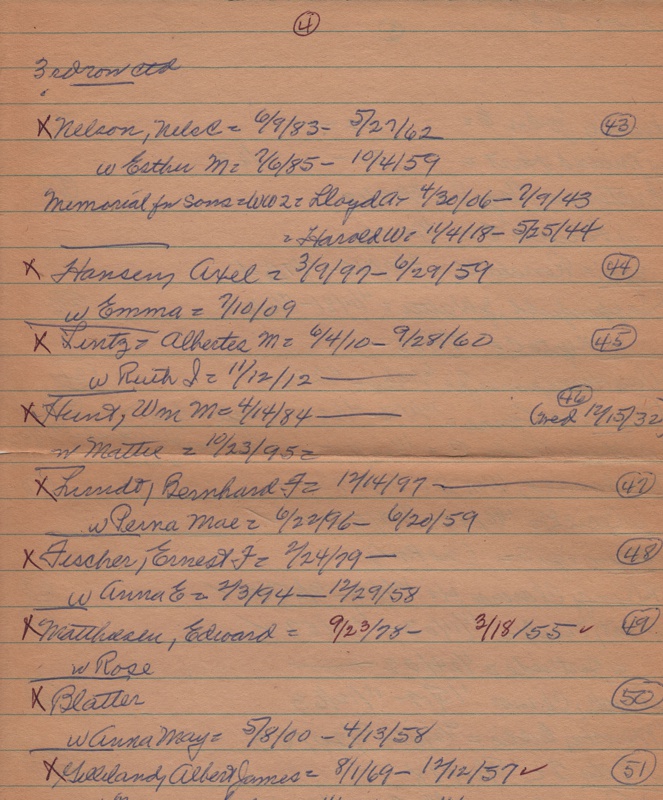 4
3rd row ctd
X Nelson, Nels C = 6/9/83 - 5/27/62 43
w Esther M = 7/6/85 - 10/4/59
Memorial for Sons = WW2 = Lloyd A - 4/30/06 - 7/9/43
= Harold W = 11/4/18 - 5/25/44
X Hansen, Axel = 3/9/97 - 6/29/59 44
w Emma = 7/10/09
X Lintz = Albertes M = 6/4/10 - 9/28/60 45
w Ruth I = 11/12/12 —
X Hunt, Wm M = 4/14/84 — 46
12/15/32
w Mattie = 10/23/95 =
X Lundt, Bernhard F = 12/14/97 — 47
w Perna Mae = 6/22/96 - 6/20/59
X Fischer, Ernest F = 2/24/79 — 48
w Anna E = 2/3/94 — 12/29/58
X Matthiesen, Edward = 9/23/78 - 3/18/55 ✓ 49
w Rose
X Blatter 50
w Anna May = 5/8/00 - 4/13/58
X Gilliland, Albert James = 8/1/69 - 12/12/57 ✓ 51